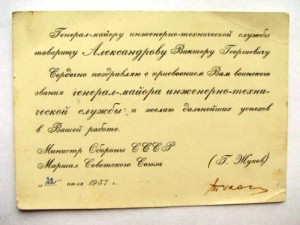 Генерал-майору инженерно-технической службы
товарищу Александрову Виктору Георгиевичу
Сердечно поздравляю с присвоением Вам воинского
звания генерал-майора инженерно-техни-
ческой службы и желаю дальнейших успехов
в Вашей работе.
Министр Обороны СССР
Маршал Советского Союза (Г. Жуков)
июля 1957 г.